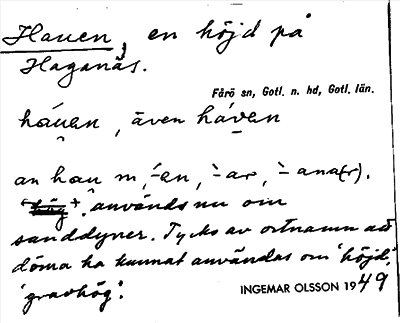 Hauen, en höjd på
Haganäs.
Fårö sn, Gotl. n. hd, Gotl. län.
háuen, även háven
an hau m, -en, -ar, -ana(r).
används nu om
sanddyner. Tycks av ortnamn att
döma ha kunnat användas om 'höjd',
'gravhög'.
INGEMAR OLSSON 1949